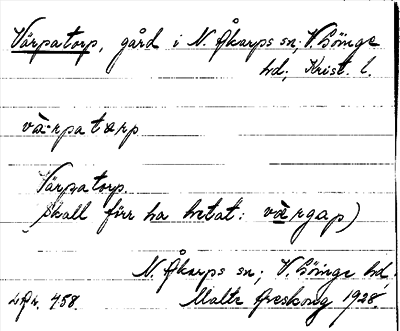 Värpatorp, gård i N. Åkarps sn; V. Göinge
hd; Krist. l.
và-rpatɷrp
Värpatorp.
(Skall förr ha hetat: värgap)
N. Åkarps sn; V. Göinge hd,
L.A. 458. Malte Areskoug 1928.